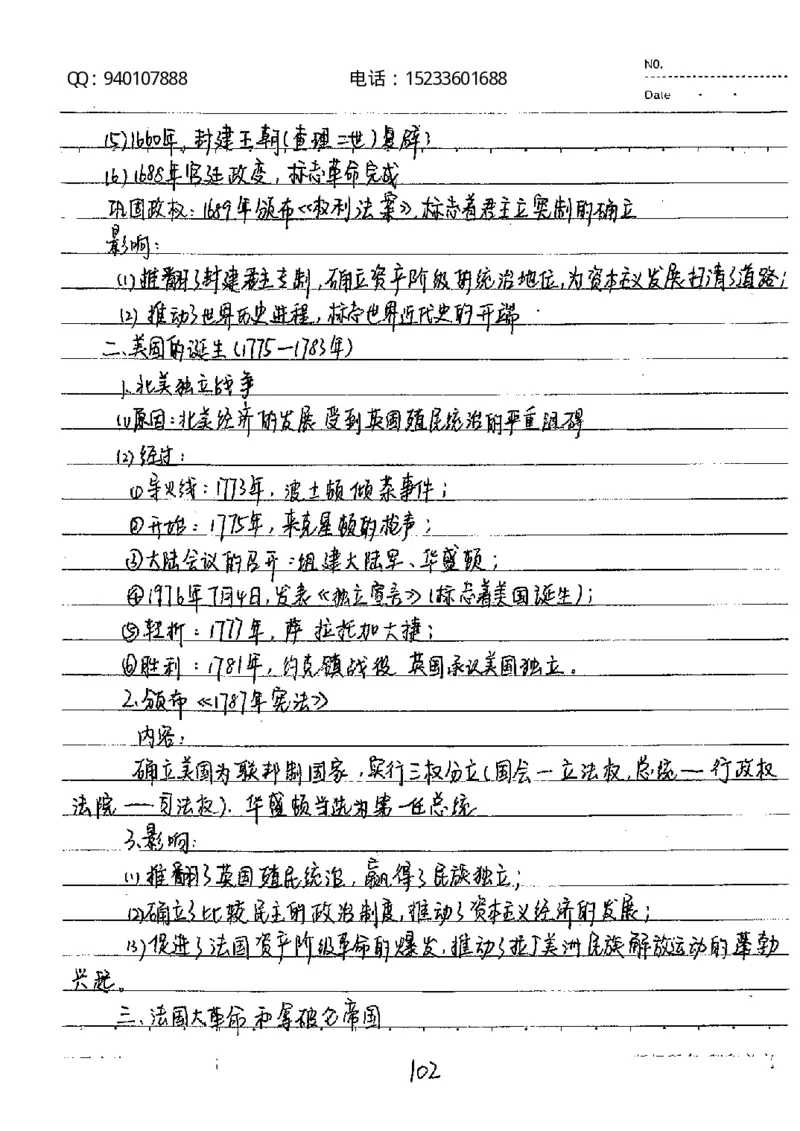 QQ：940107888 电话：15233601688
NO.
Date
(5)1660年，封建王朝(查理二世)复辟；
(6)1688年宫廷政变，标志革命完成
巩固政权：1689年颁布《权利法案》，标志着君主立宪制的确立
影响：
(1)推翻了封建君主专制，确立资产阶级的统治地位，为资本主义发展扫清了道路；
(2)推动了世界历史进程，标志世界近代史的开端
二、美国的诞生(1775—1783年)
1、北美独立战争
(1)原因：北美经济的发展受到英国殖民统治的严重阻碍
(2)经过：
①导火线：1773年，波士顿倾茶事件；
②开始：1775年，来克星顿的枪声；
③大陆会议的召开：组建大陆军、华盛顿；
④1976年7月4日，发表《独立宣言》(标志着美国诞生)；
⑤转折：1777年，萨拉托加大捷；
⑥胜利：1781年，约克镇战役 英国承认美国独立。
2、颁布《1787年宪法》
内容：
确立美国为联邦制国家，实行三权分立(国会—立法权，总统—行政权
法院—司法权)．华盛顿当选为第一任总统
3、影响：
(1)推翻了英国殖民统治，赢得了民族独立；
(2)确立了比较民主的政治制度，推动了资本主义经济的发展；
(3)促进了法国资产阶级革命的爆发，推动了拉丁美洲民族解放运动的蓬勃
兴起。
三、法国大革命和拿破仑帝国
102